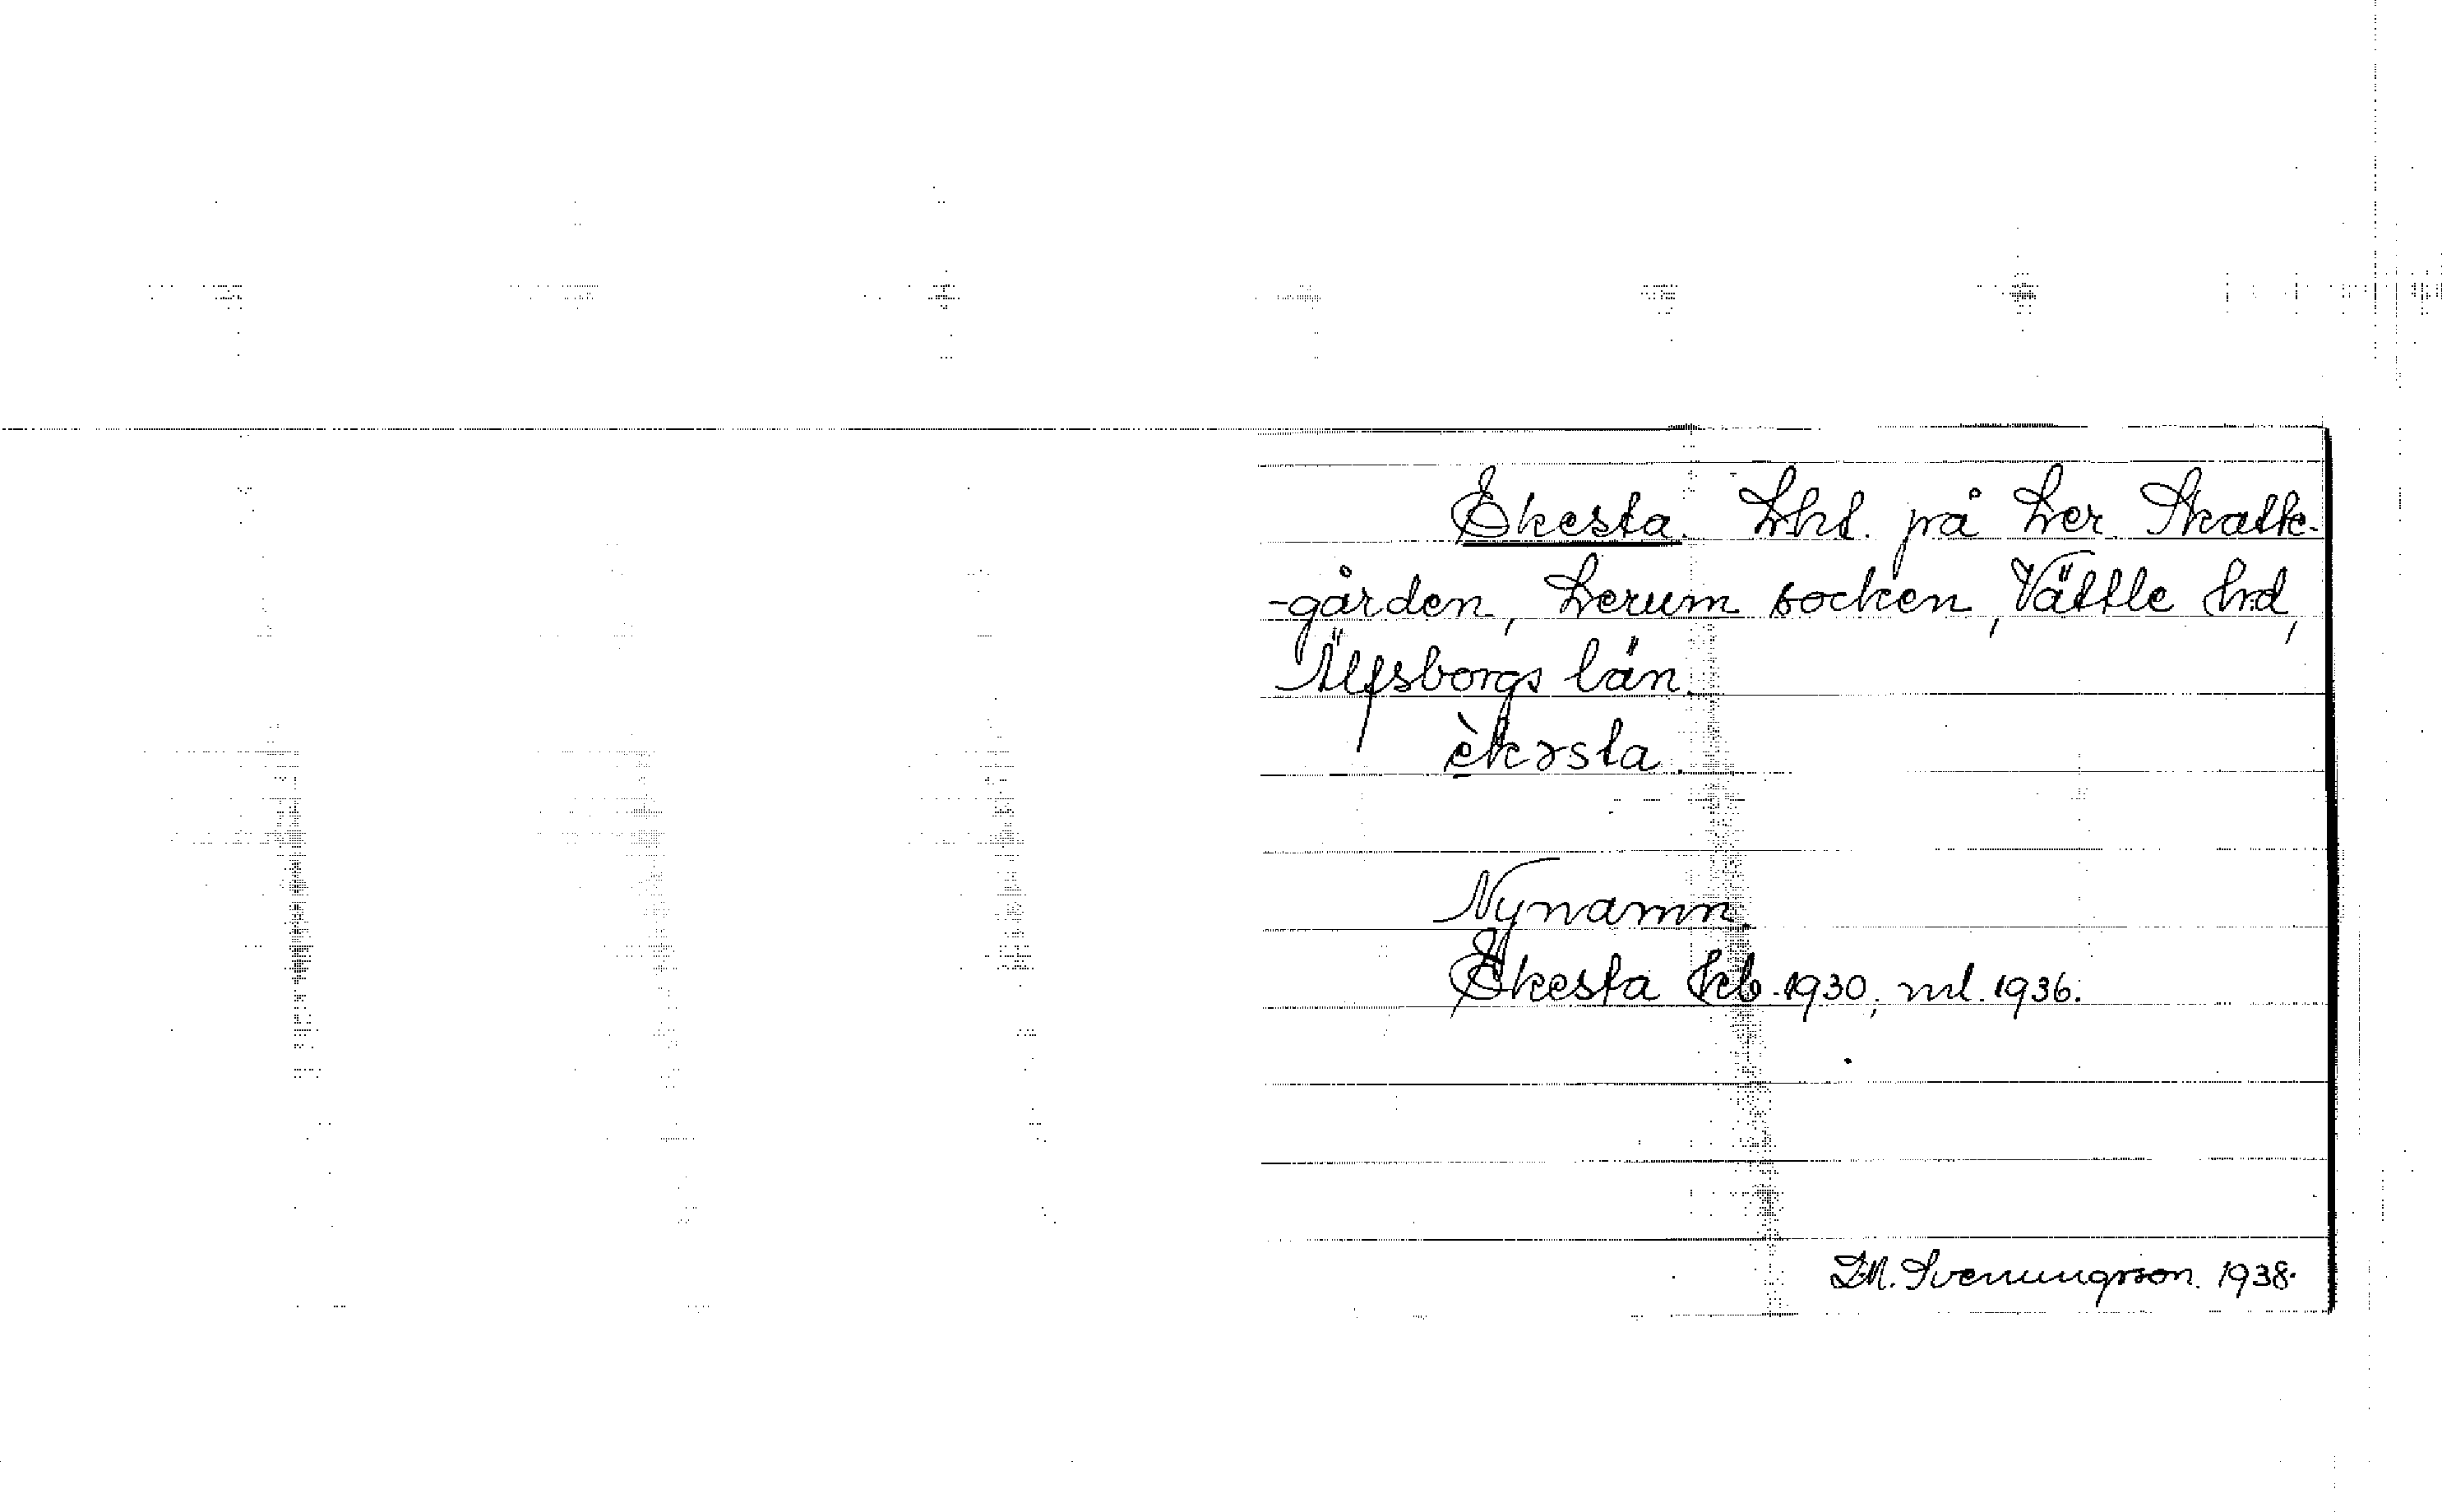 Ekesta. Lht. på Ler Skatte-
-gården, Lerum socken, Vättle hd,
Älfsborgs län.
èkəsta.
Nynamn.
Ekesta kb. 1930, ml. 1936.
D.M. Svenungsson. 1938.